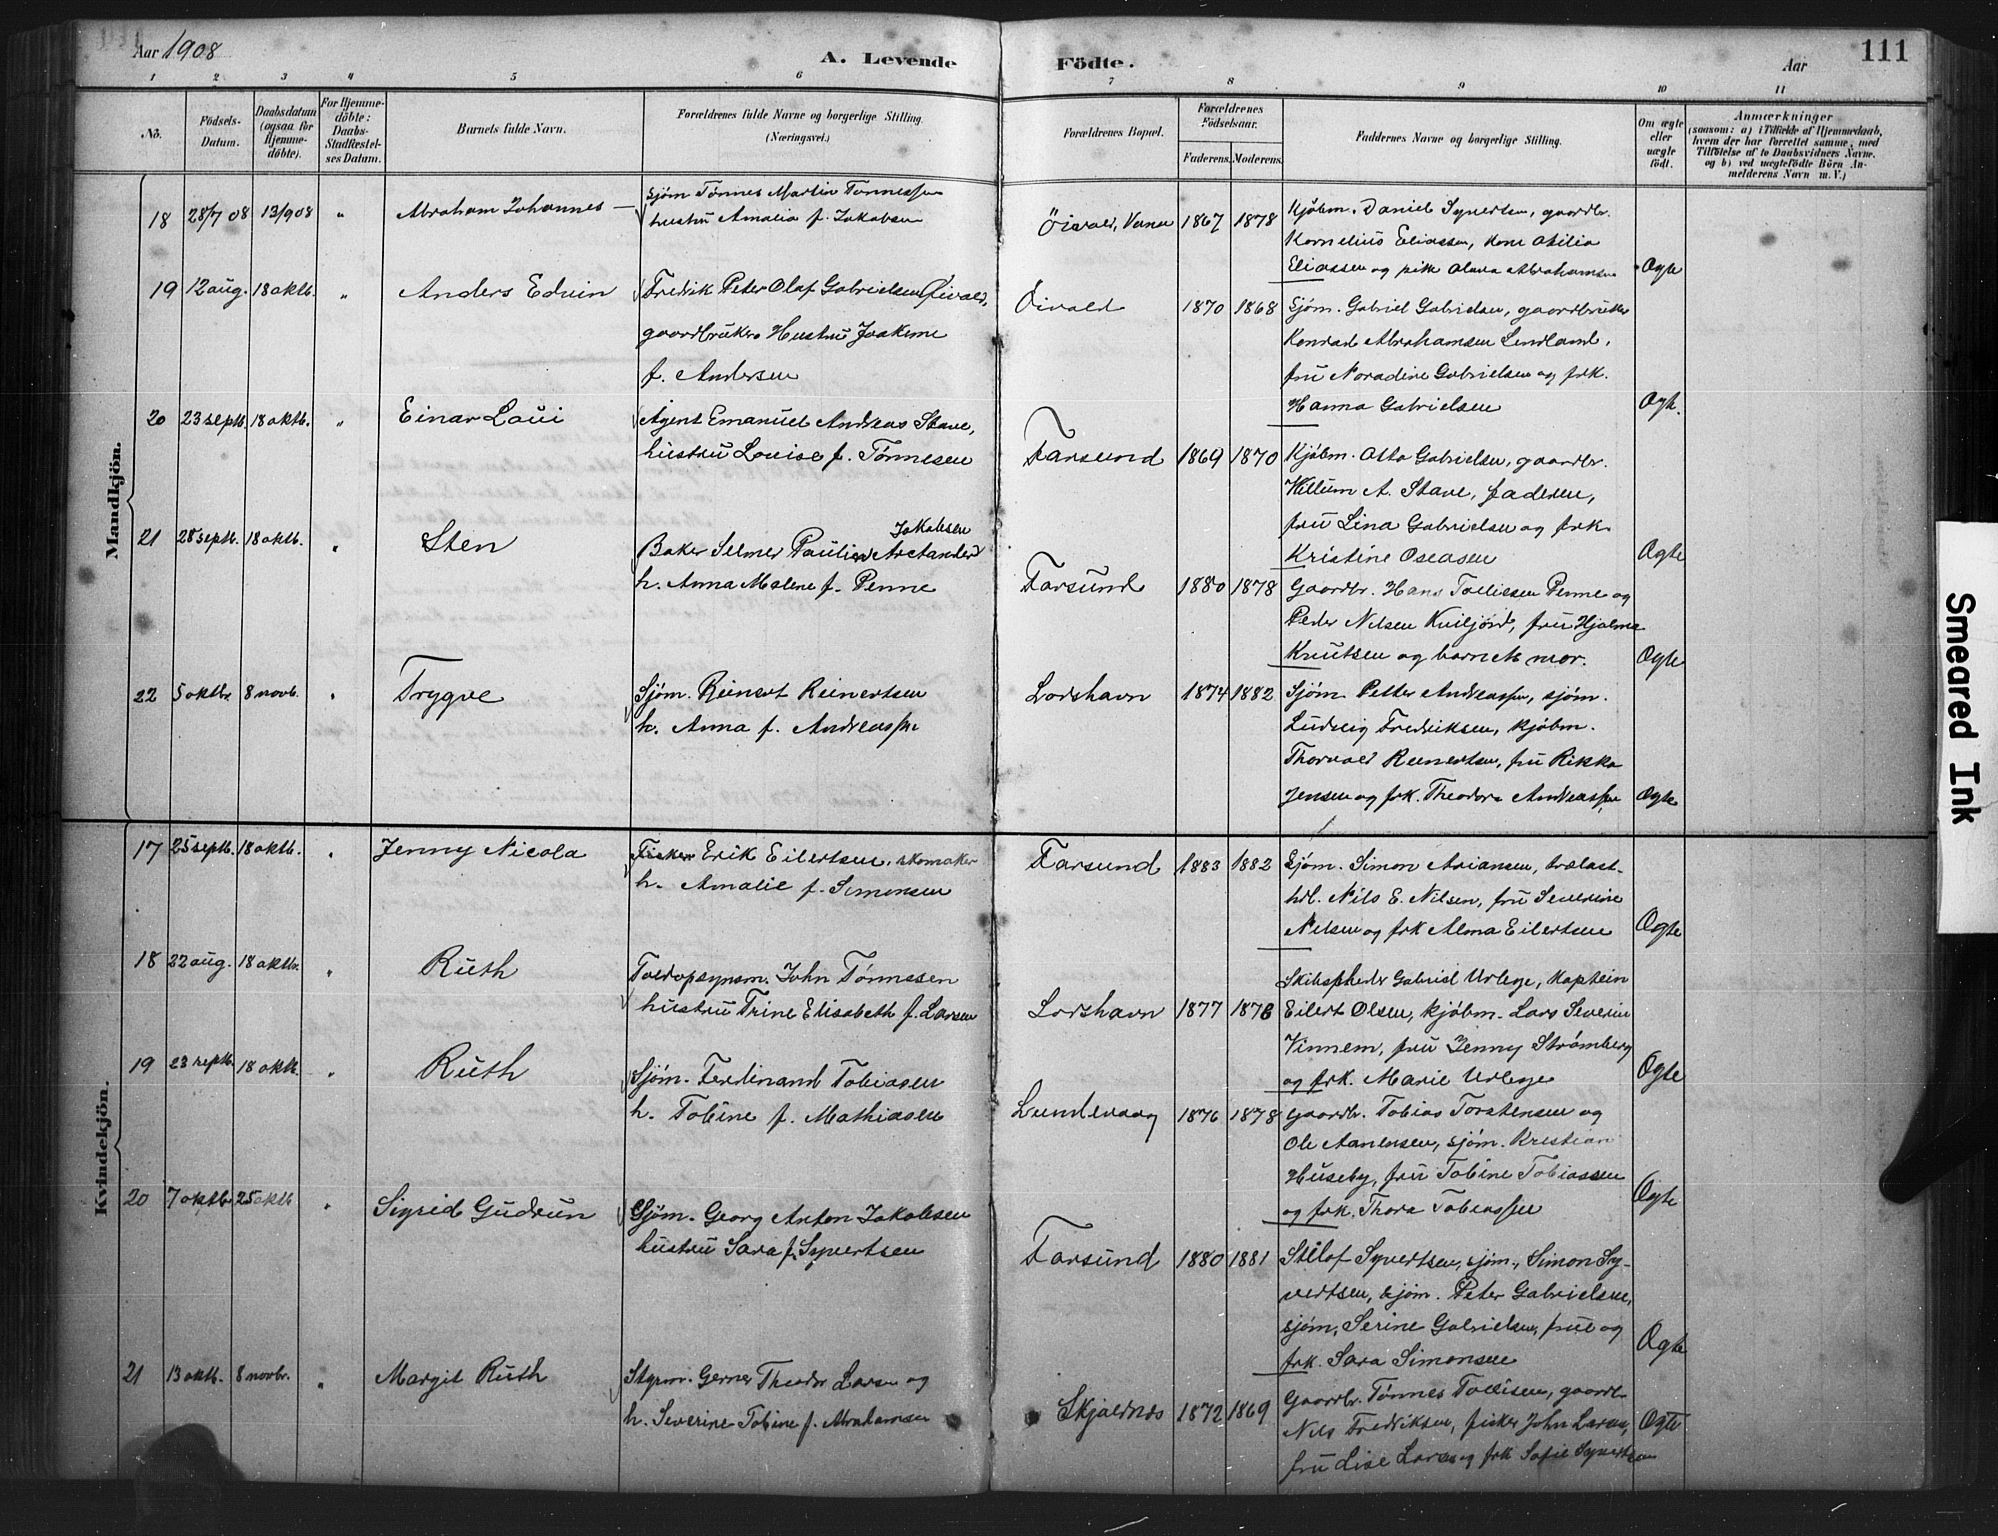 Aar 1908
A. Levende
Födte.
Aar
111
1 2 3 4 5 6 7 8 9 10 11
No.
Födsels-
Datum.
Daabsdatum
(ogsaa for
Hjemme-
döbte).
For Hjemme-
döbte:
Daabs-
Stadfæstel-
ses Datum.
Barnets fulde Navn.
Forældrenes fulde Navne og borgerlige Stilling.
(Næringsvei.)
Forældrenes Bopæl.
Forældrenes
Födselsaar.
Faderens.
Moderens.
Faddernes Navne og borgerlige Stilling.
Om ægte
eller
uægte
födt.
Anmærkninger
(saasom: a) i Tilfælde af Hjemmedaab,
hvem der har forrettet samme, med
Tilföielse af to Daabsvidners Navne.
og b) ved uægtefödte Börn An-
melderens Navn m. V.)
Mandkjön.
18 28/7 08 13/9 08 " Abraham Johannes —
Sjøm Tønnes Martin Tønnessen
hustru Amalia f. Jakobsen
Öivold, Vanse 1867 1878
Kjøbm. Daniel Syvertsen, gaardbr.
Kornelius Eliassen, kone Otilia
Eliassen og pike Olava Abrahamsen
Ægte
19 12 aug. 18 oktb. " Anders Edvin
Fredrik Peter Olaf Gabrielsen Øivold,
gaardbruker Hustru Joakime
f. Andersen
Öivold 1870 1868
Sjøm. Gabriel Gabrielsen, gaardbruker
Konrad Abrahamsen Lundland,
fru Noradine Gabrielsen og frk.
Hanna Gabrielsen
Ægt.
20 23 septb. 18 oktb. " Einar Laui
Agent Emanuel Andreas Stave,
hustru Louise f. Tønnesen
Farsund 1869 1870
Kjøbm. Otto Gabrielsen, gaardbr.
Willum A. Stave, faderen,
fru Lina Gabrielsen og frk.
Kristine Oseasen
Ægte
21 28 septb. 18 oktb. " Sten
Jakobsen
Baker Selmer Paulin Arctander
h. Anna Malene f. Penne
Farsund 1880 1878
Gaardbr. Hans Tollissen Penne og
Peder Nilsen Kviljord, fru Hjalma
Knutsen og barnets mor.
Ægte
22 5 oktbr. 8 novb. " Trygve
Sjøm. Reinert Reinertsen
h. Anna f. Andreassen
Loshavn 1874 1882
Sjøm. Petter Andreassen, sjøm.
Ludvig Fredriksen, kjøbm.
Thorvald Reinertsen, fru Rikka
Jensen og frk. Theodora Andreassen
Ægte
Kvindekjön.
17 25 septb. 18 oktb. " Jenny Nicola
Fisker Erik Eilertsen, skomaker
h. Amalie f. Simonsen
Farsund 1883 1882
Sjøm. Simon Ariansen, trælast-
hdl. Nils E. Nilsen, fru Severine
Nilsen og frk Alma Eilertsen
Ægte
18 22 aug. 18 oktbr. " Ruth
Toldopsynsm. John Tønnesen
hustru Trine Elisabeth f. Larsen
Loshavn 1877 1878
Skibsreder Gabriel Urlege, kaptein
Eilert Olsen, kjøbm. Lars Severin
Vinnem, fru Jenny Strømberg
og frk. Marie Urlege
Ægte
19 23 septb. 18 oktb. " Ruth
Sjøm. Ferdinand Tobiasen
h. Tobine f. Mathiasen
Lundevaag 1876 1878
Gaardbr. Tobias Torstensen og
Ole Aanensen, sjøm. Kristian
Huseby, fru Tobine Tobiassen
og frk. Thora Tobiassen
Ægte
20 7 oktbr. 25 oktb " Sigrid Gudrun
Sjøm. Georg Anton Jakobsen
hustru Sara f. Syvertsen
Farsund 1880 1881
Syvertsen, sjøm., Simon Sy-
vertsen, sjøm. Peter Gabrielsen,
sjøm, Serine Gabrielsen, frue og
frk. Sara Simonsen
Ægte
21 13 oktb. 8 novbr. " Margit Ruth
Styrm. Gerner Theodor Larsen og
h. Severine Tobine f. Abrahamsen
Skjoldnes 1872 1869
Gaardbr. Tønnes Tollisen, gaardbr
Nils Fredriksen, fisker John Larsen,
fru Lise Larsen og frk Sofie Syvertsen
Ægte
Smeared Ink